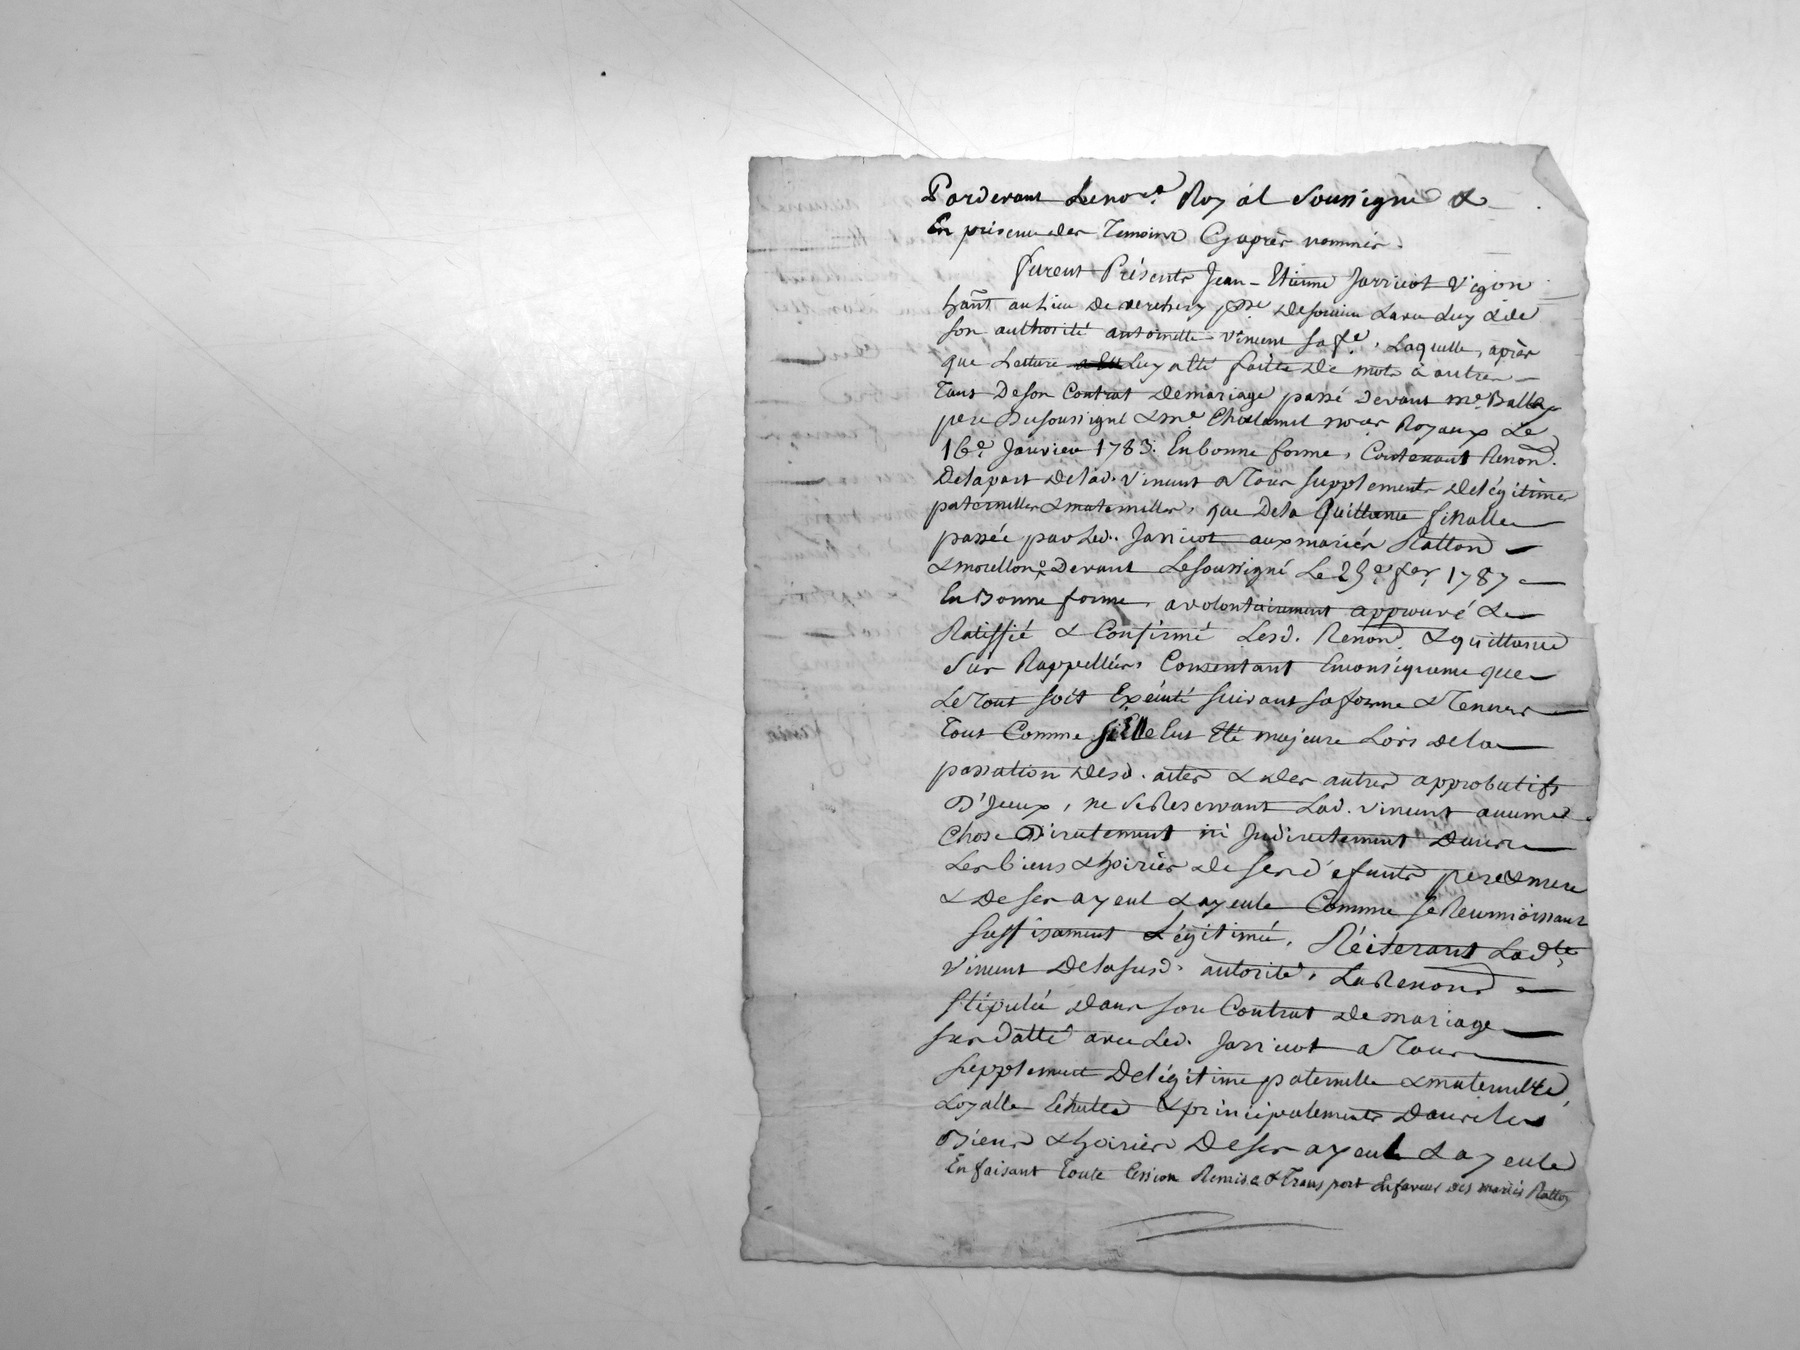 Pardevant Le no.re Royal Soussigné &
En présence des Temoins Cyaprès nommés.
furent Présents Jean-Etienne Jarricot Vigon
hant au Lieu de
son authorité antoinette Vincent sa fe. Laquelle, après
que Lecture Luy a Eté faitte De mots à autres
Tant De son Contrat De mariage passé devant me. Ballay
pere Du soussigné & me. Chalamel no.res Royaux Le
16e. Janvier 1783. En bonne forme, Contenant Renon.
De la part de lad. Vincent a Tous supplements De légitimes
paternelles & maternelles, que De la Quittance finalle
passée par Led. Jarricot aux mariés Ratton
& morellon, Devant Le soussigné Le 25e. fer. 1787
En Bonne forme, a volontairement approuvé &
Ratiffié & Confirmé Lesd. Renon. & quittance
sus Rappellées, Consentant En conséquence que
Le Tout soit Exécuté suivant sa forme & Teneur
Tout Comme si Elle Eut Eté majeure Lors de la
passation Desd. actes & des autres approbatifs
D'Iceux, ne se Reservant Lad. Vincent aucune
Chose Directement ni Indirectement Dans
Les biens & hoiries De ses défunts pere & mere
& De ses ayeul & ayeule Comme se Reconnoissant
suffisament Légitimée, Réiterant Lad.te
Vincent De la susd. autorité, La Renon.
stipulée Dans son Contrat De mariage
sus datté avec Led. Jarricot a Tous
supplement De légitime paternelle & maternelle,
Loyalle Echutes & principalement Dans Les
Biens & hoiries De ses ayeul & ayeule
En faisant Toute Cession Remise & Transport En faveur des mariés Ratton